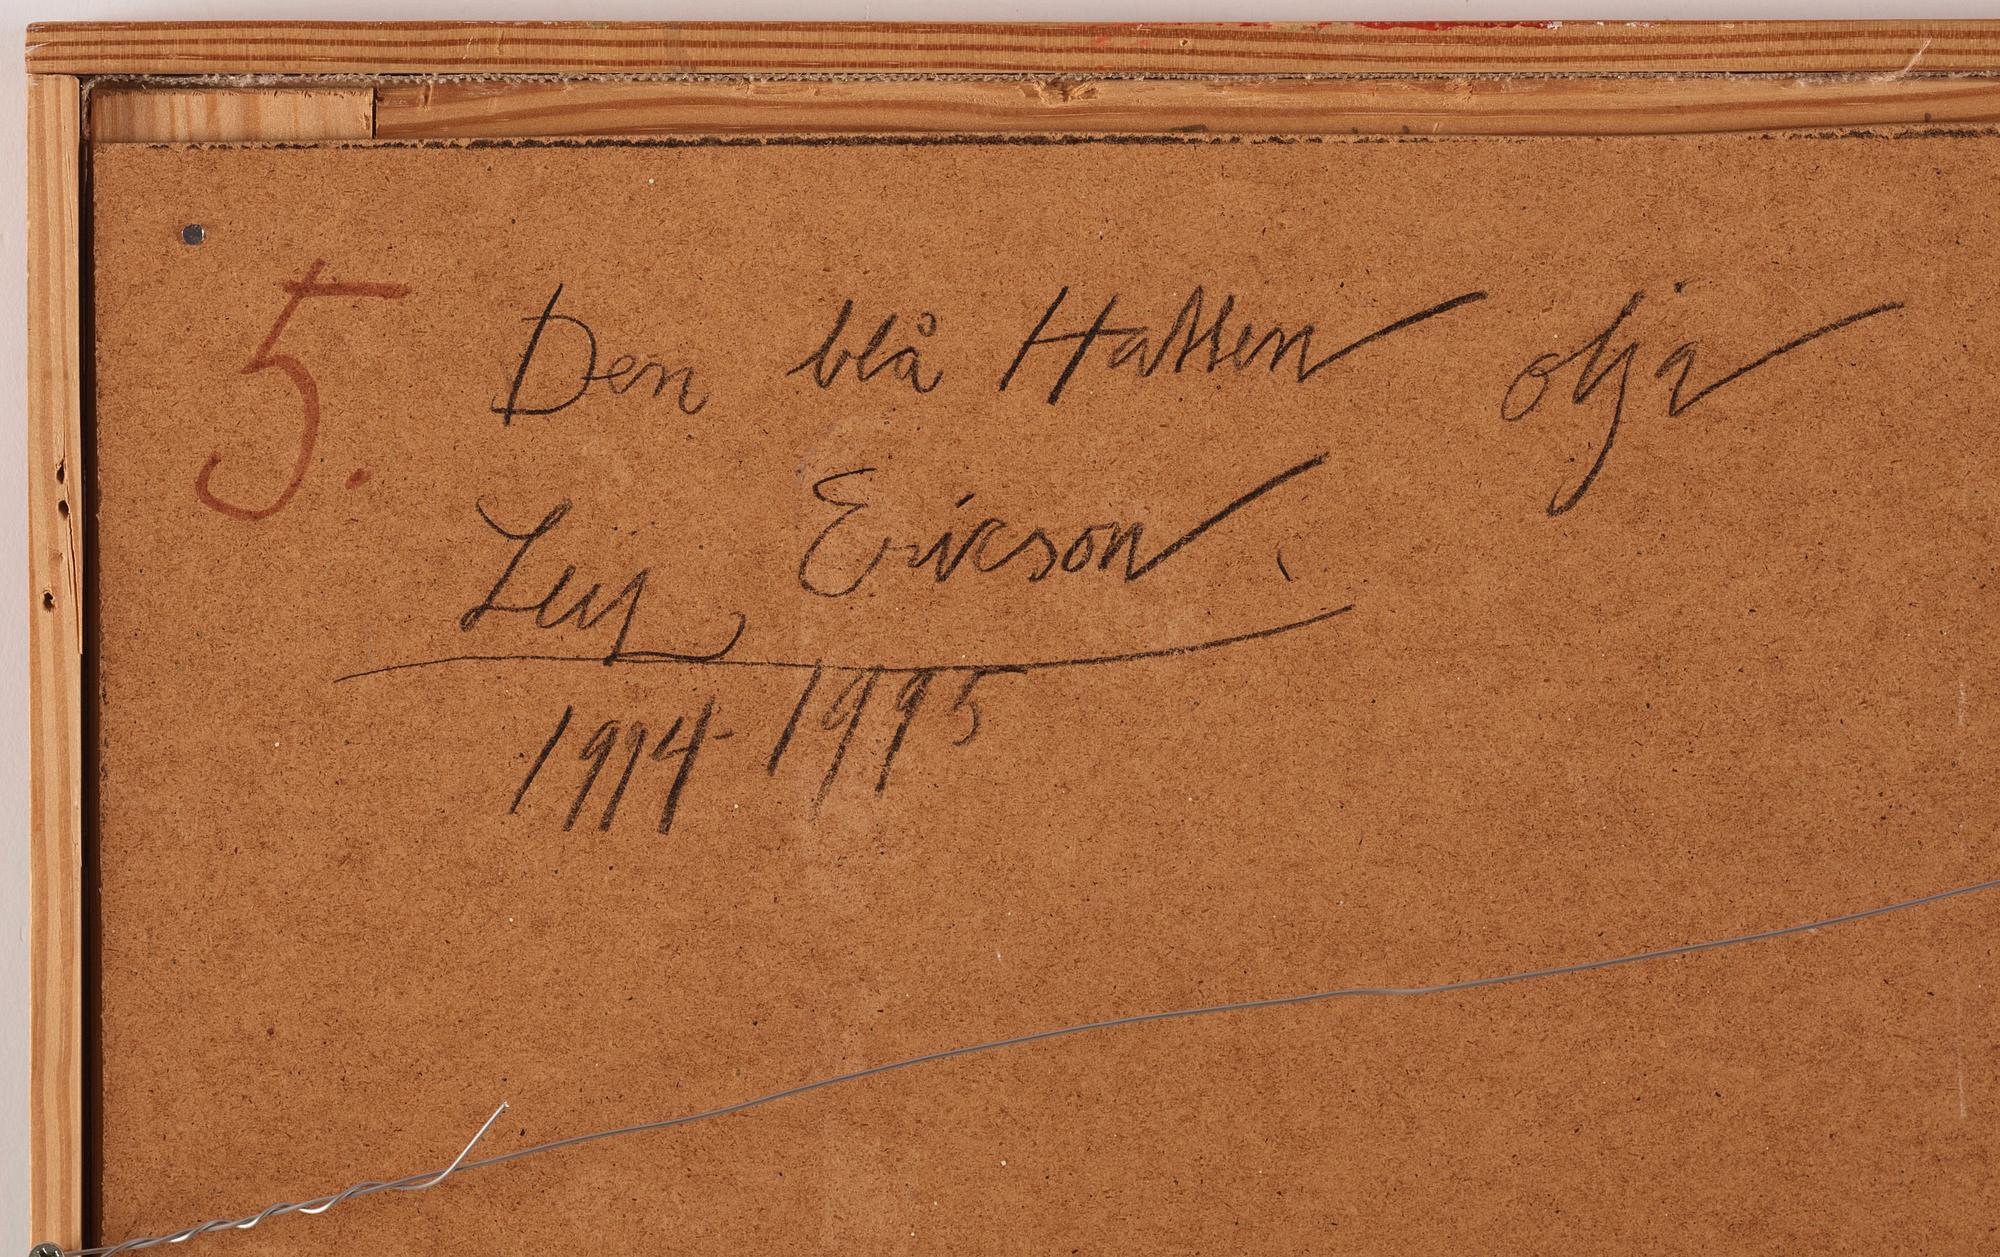 5. Den blå Hatten olja
Leif Ericson
1994-1995